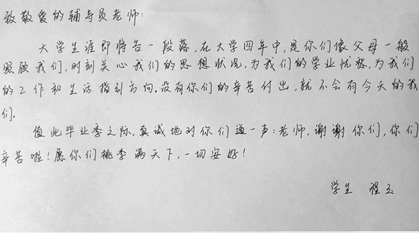 致敬爱的辅导员老师:
大学生涯即将告一段落,在大学四年中,是你们像父母一般
照顾我们,时刻关心我们的思想状况,为我们的学业忧愁,为我们
的工作和生活指引方向.没有你们的辛苦付出,就不会有今天的我
们.
值此毕业季之际,真诚地对你们道一声:老师,谢谢你们,你们
辛苦啦!愿你们桃李满天下,一切安好!
学生 程玉